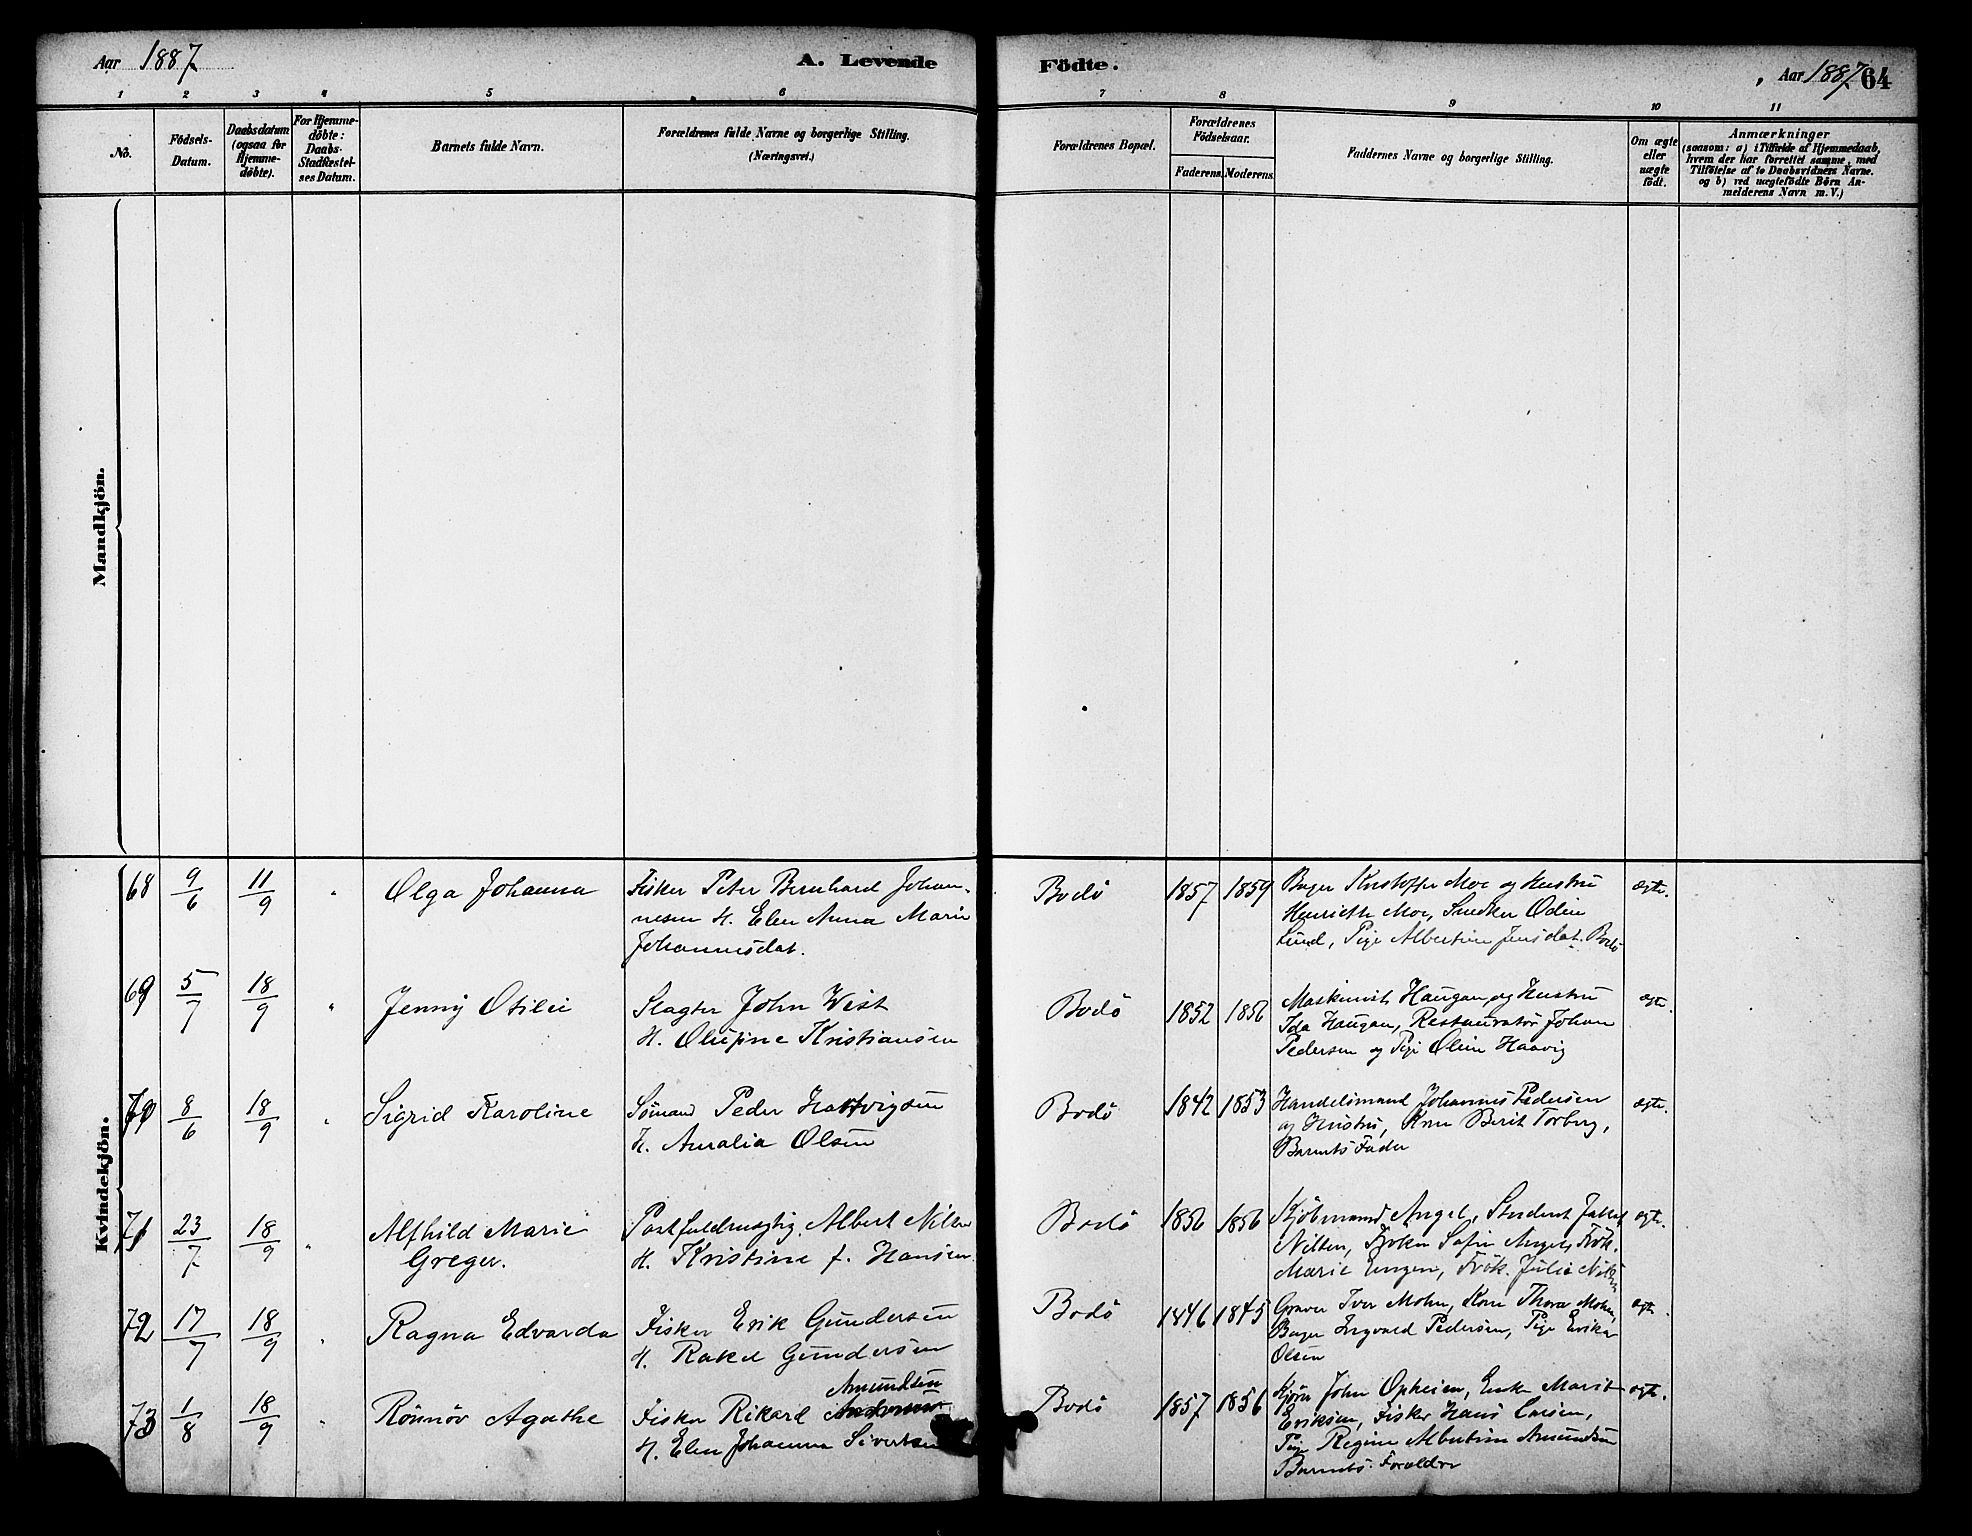 Aar 1887
A. Levende Födte.
Aar 1887 64
1 2 3 4 5 6 7 8 9 10 11
No.
Födsels-
Datum.
Daabsdatum
(ogsaa for
Hjemme-
döbte).
For Hjemme-
döbte:
Daabs-
Stadfæstel-
ses Datum.
Barnets fulde Navn.
Forældrenes fulde Navne og borgerlige Stilling.
(Næringsvei.)
Forældrenes Bopæl.
Forældrenes
Födselsaar.
Faderens. Moderens.
Faddernes Navne og borgerlige Stilling.
Om ægte
eller
uægte
födt.
Anmærkninger
(saasom: a) i Tilfælde af Hjemmedaab,
hvem der har forrettet samme, med
Tilföielse af to Daabsvidners Navne.
og b) ved uægtefödte Börn An-
melderens Navn m.V.)
Mandkjön.
Kvindekjön.
68 9/6 11/9 " Olga Johanna
Fisker Peter Bernhard Johan-
nesen H. Elen Anna Marie
Johannesdat.
Bodö 1857 1859
Bager Kristoffer Moe og Hustru
Henriette Moe, Snedker Odin
Lund, Pige Albertine Jensdat. Bodö
ægte.
69 5/7 18/9 " Jenny Otilie
Slagter John Wist
H. Olufine Kristiansen
Bodö 1852 1856
Maskinist Haugan, og Hustru
Ida Haugan, Restauratör Johan
Pedersen og Pige Oline Haavig
ægte.
70 8/6 18/9 " Sigrid Karoline
Sömand Peder Hartvigsen
H. Amalia Olsen
Bodö 1842 1853
Handelsmand Johannes Pedersen
og Hustru, Kone Berit Torberg,
Barnets Fader
ægte.
71 23/7 18/9 " Alfhild Marie
Greger.
Postfuldmægtig Albert Nilsen
H. Kristine f. Hansen.
Bodö 1856 1856
Kjöbmand Angel, Student
Nilsen, Fröken Sofie Angel, Frök.
Marie Engen, Frök. Julie
ægte.
72 17/7 18/9 " Ragna Edvarda
Fisker Erik Gundersen
H. Rakel Gundersen
Bodö 1846 1845
Graver Iver Mohn, Kone Thora Mohn,
Bager Ingvald Pedersen, Pige Erika
Olsen
ægte.
73 1/8 18/9 " Rönnöv Agathe
Amundsen
Fisker Rikard
H. Elen Johanna Sivertsen
Bodö 1857 1856
John Opheim, Enke Marit
Eriksen, Fisker Hans Larsen,
Pige Regine Albertine Amundsen
Barnets Forældre
ægte.